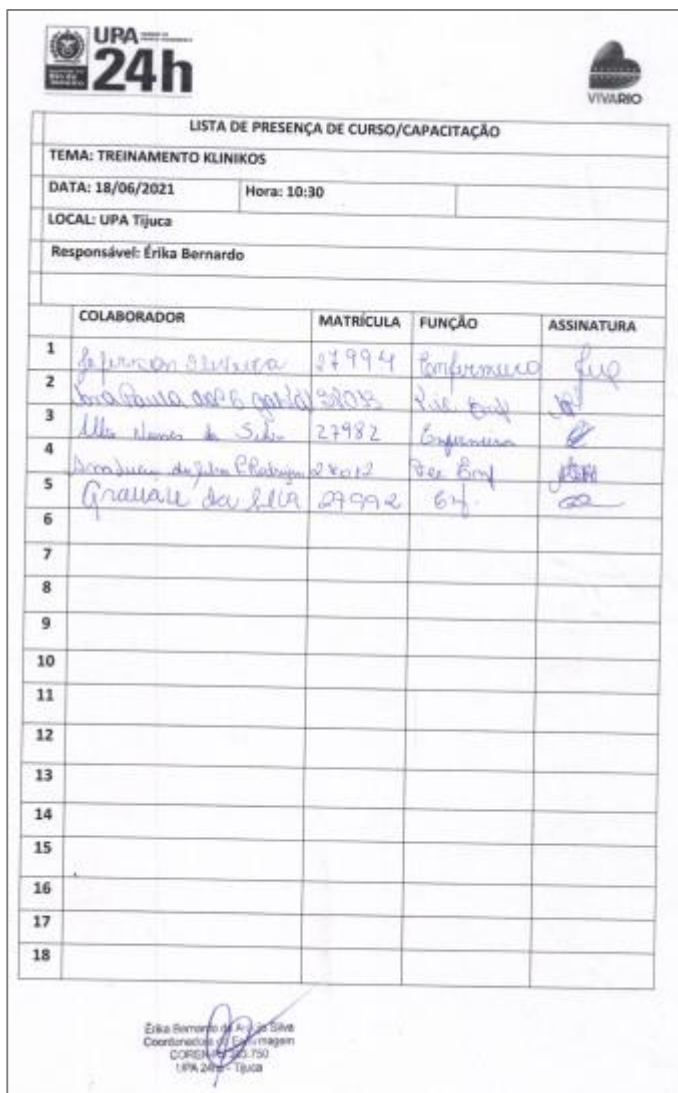 UPA
24h
VIVARIO
LISTA DE PRESENÇA DE CURSO/CAPACITAÇÃO
TEMA: TREINAMENTO KLINIKOS
DATA: 18/06/2021 Hora: 10:30
LOCAL: UPA Tijuca
Responsável: Érika Bernardo
COLABORADOR MATRÍCULA FUNÇÃO ASSINATURA
1 Jeferson Oliveira 27994 Enfermeiro
2 Paula
3 Nunes da Silva 27982 Enfermeira
4 Enf
5 da Silva 27992 Enf.
6
7
8
9
10
11
12
13
14
15
16
17
18
Érika Bernardo Silva
Coordenadora
COREN
UPA 24h - Tijuca